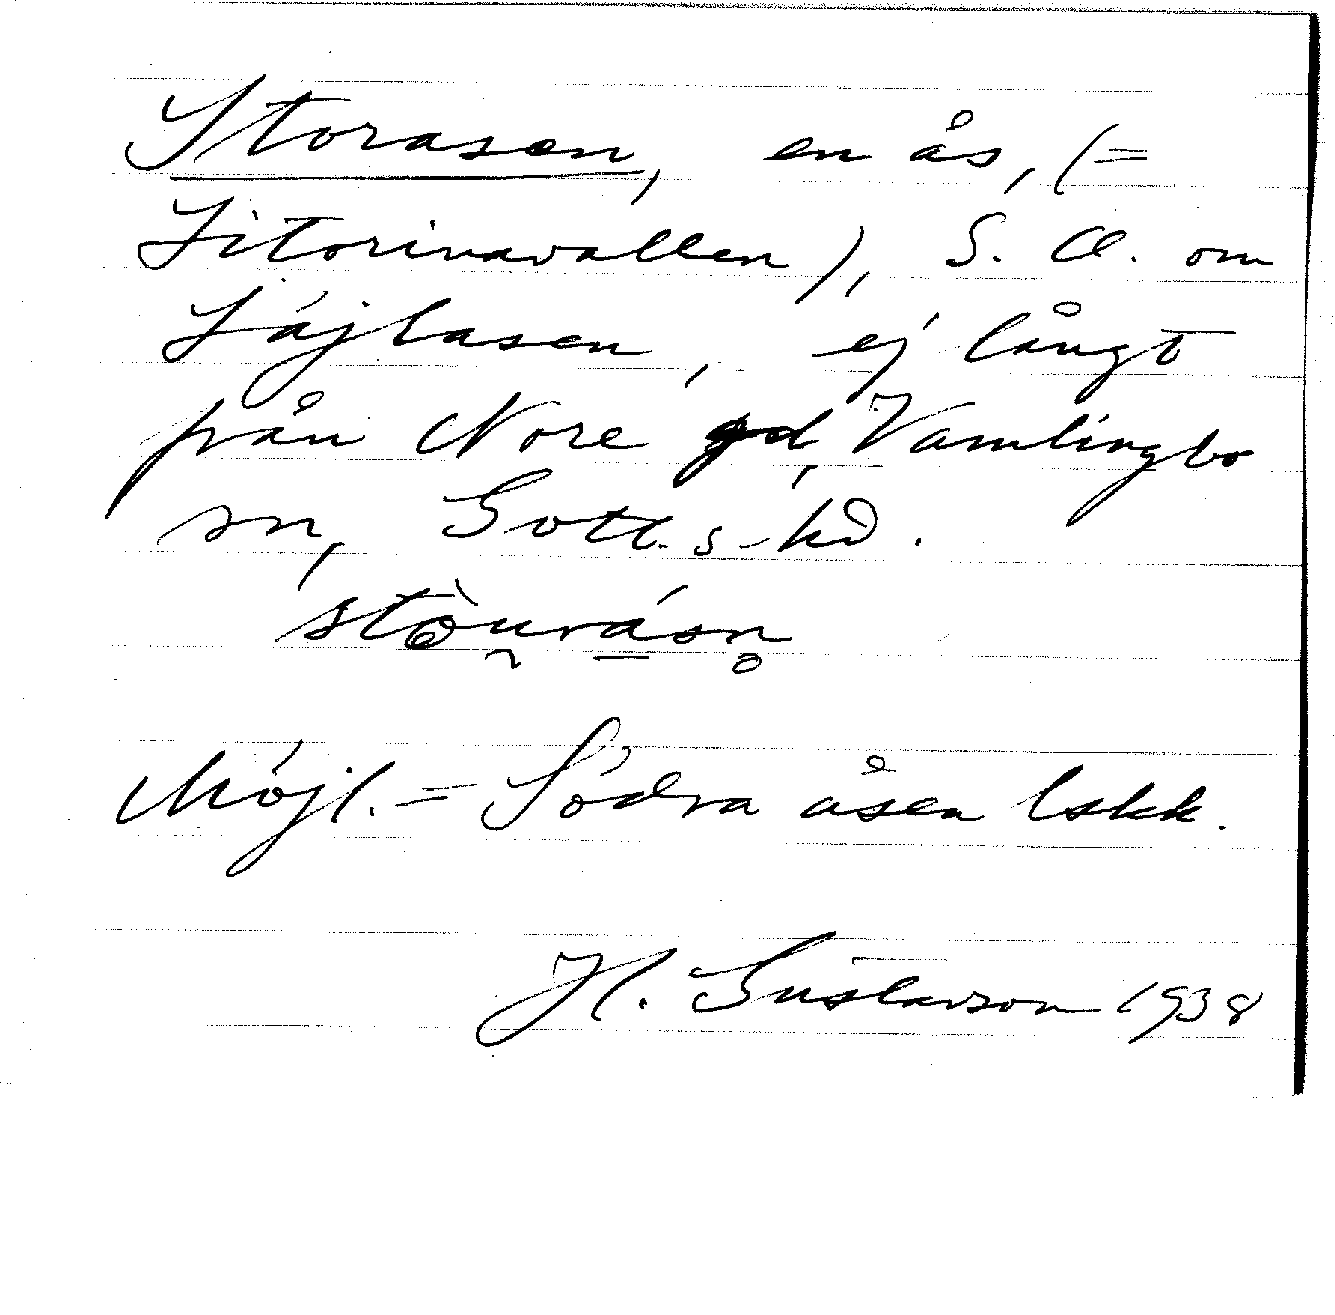 Storasen, en ås, (=
Litorinavallen), S. O. om
Lájlasen, ej långt
från Nore gd, Vamlingbo
sn, Gotl. s. hd.
Möjl. = Södra åsen lskk.
H. Gustavson 1938